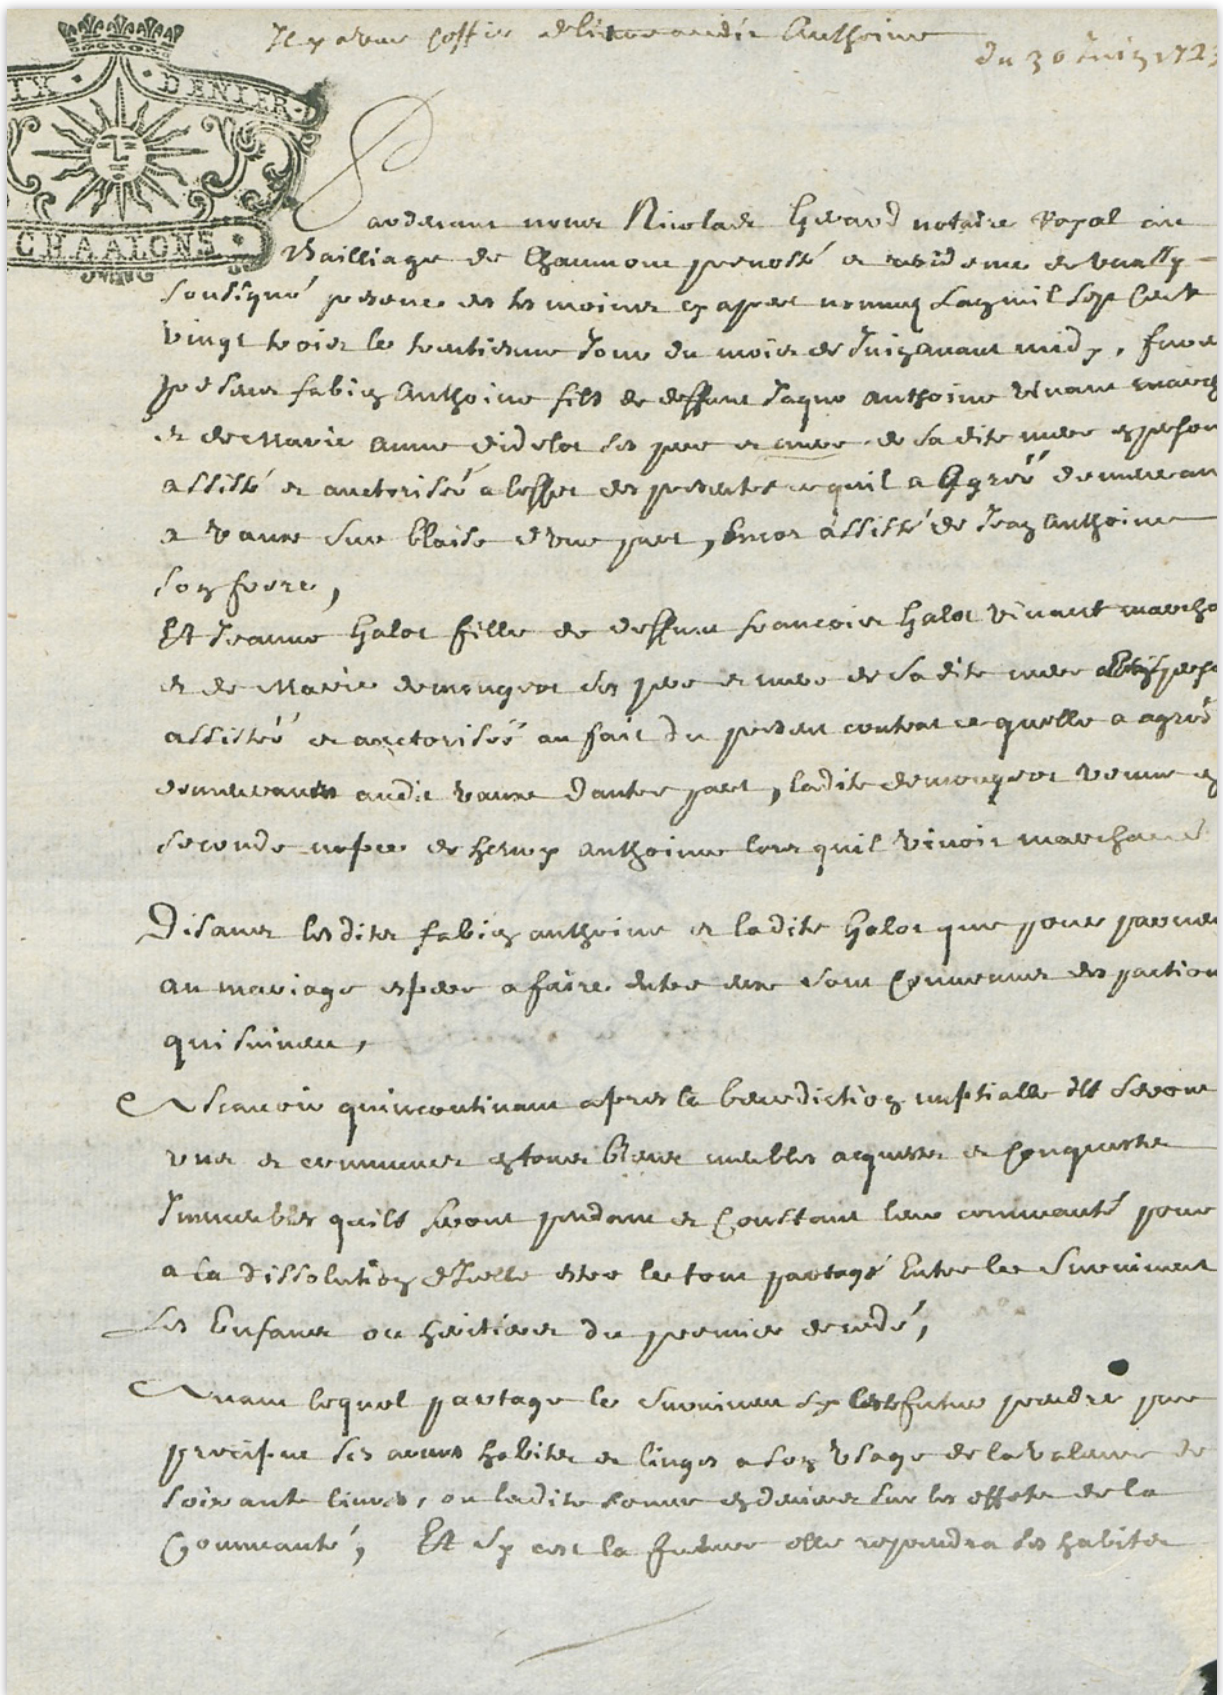 Il y a une coppie delivree audit Anthoine
du 30 Juin 1723
IX · DENIER ·
CHAALONS ·
Pardevant nous Nicolas Gerard notaire Royal au
Bailliage de Chaumont prevosté et residence de
soussigné presence des tesmoins cy apres nommez Lan mil sept cent
vingt trois le trentiesme Jour du mois de Juin avant midy, fure
presens fabien Anthoine fils de deffunt Jaque Anthoine vivant march
et de Marie Anne didelot ses pere et mere de sadite mere en person
assisté et auctorisé a leffet des presentes ce quil a Agréé demeuran
a vaux sur blaise dune part, Encor assisté de Jean Anthoine
son frere,
Et Jeanne Halot fille de deffunt francois Halot vivant marcha
et de Marie demongeot ses pere et mere de sadite mere perso
assistéé et auctoriséé au fait du present contrat ce quelle a agréé
demeurantes audit vaux dautre part, ladite demongeot veuve en
seconde nopce de henry Anthoine lors quil vivoit marchand
Disans lesdits fabien anthoine et ladite Halot que pour parveni
au mariage esperé a faire entre eux sont Convenus des paction
qui suivent,
Ascavoir quincontinant apres la benediction nuptialle ils seront
uns et communs en tous biens meubles acquests et Conquests
Immeubles quils feront pendant et Constant leur communauté pour
a la dissolution dIcelle estre le tout partagé Entre le survivant
Les Enfans ou heritiers du premier decedé,
Avant lequel partage le survivant sy futur prendra par
preciput ses armes habits et linges a son Usage de la valeur de
soixante livres, ou ladite somme en deniers sur les effets de la
Communauté, Et sy cest la future elle reprendra ses habits